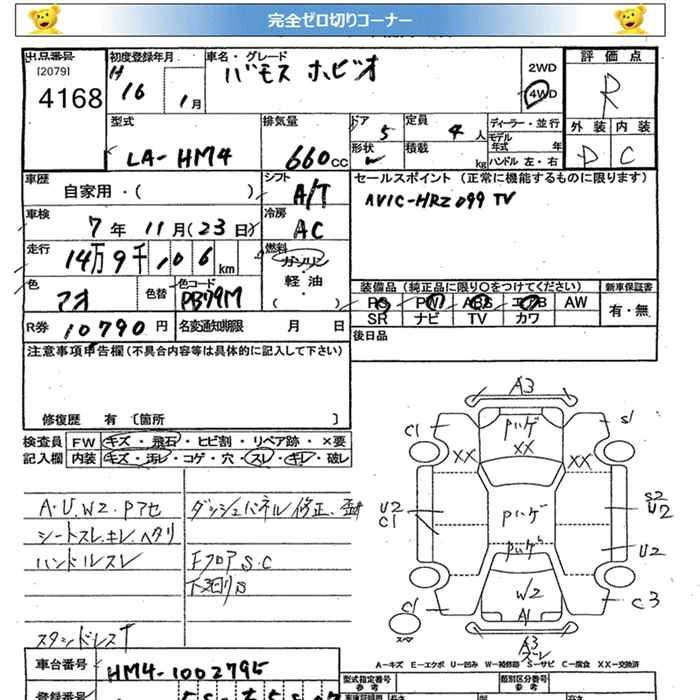 完全ゼロ切りコーナー
出品番号
[2079]
4168
初度登録年月
H
16
1月
車名・グレード
バモス ホビオ
2WD
4WD
評価点
R
外装 内装
D C
型式
LA-HM4
排気量
660cc
ドア
5
定員
4人
形状
積載
kg
ディーラー・並行
モデル
年式 年
ハンドル 左・右
車歴
自家用・( )
シフト
A/T
セールスポイント (正常に機能するものに限ります)
AVIC-HRZ099 TV
車検
7年 11月(23日)
冷房
AC
走行
14万9千106km
燃料
ガソリン
軽油
( )
色
アオ
色替
色コード
PB79M
装備品 (純正品に限り○をつけてください)
新車保証書
PS PW ABS エアB AW
有・無
SR ナビ TV カワ
R券 10790円
名変通知期限 月 日
後日品
注意事項申告欄(不具合内容等は具体的に記入して下さい)
修復歴 有 〔箇所 〕
検査員
記入欄
FW キズ・飛石・ヒビ割・リペア跡・×要
内装 キズ・汚レ・コゲ・穴・スレ・キレ・破レ
A・U.W2.Pアセ
シートスレ.キレ.ヘタリ
ハンドルスレ
ダッシュパネル修正.歪
Fフロア S.C
下回りS
スタンドレスT
A3
C1
S1
Pハゲ
XX
XX
XX
U2
C1
Pハゲ
S2
U2
Pハゲ
U2
W2
A1
C3
C1
スペア
A3
A-キズ E-エクボ U-凹み W-補修跡 S-サビ C-腐食 XX-交換済
車台番号
HM4-1002795
型式指定番号
参考
類別区分番号
参考
登録番号